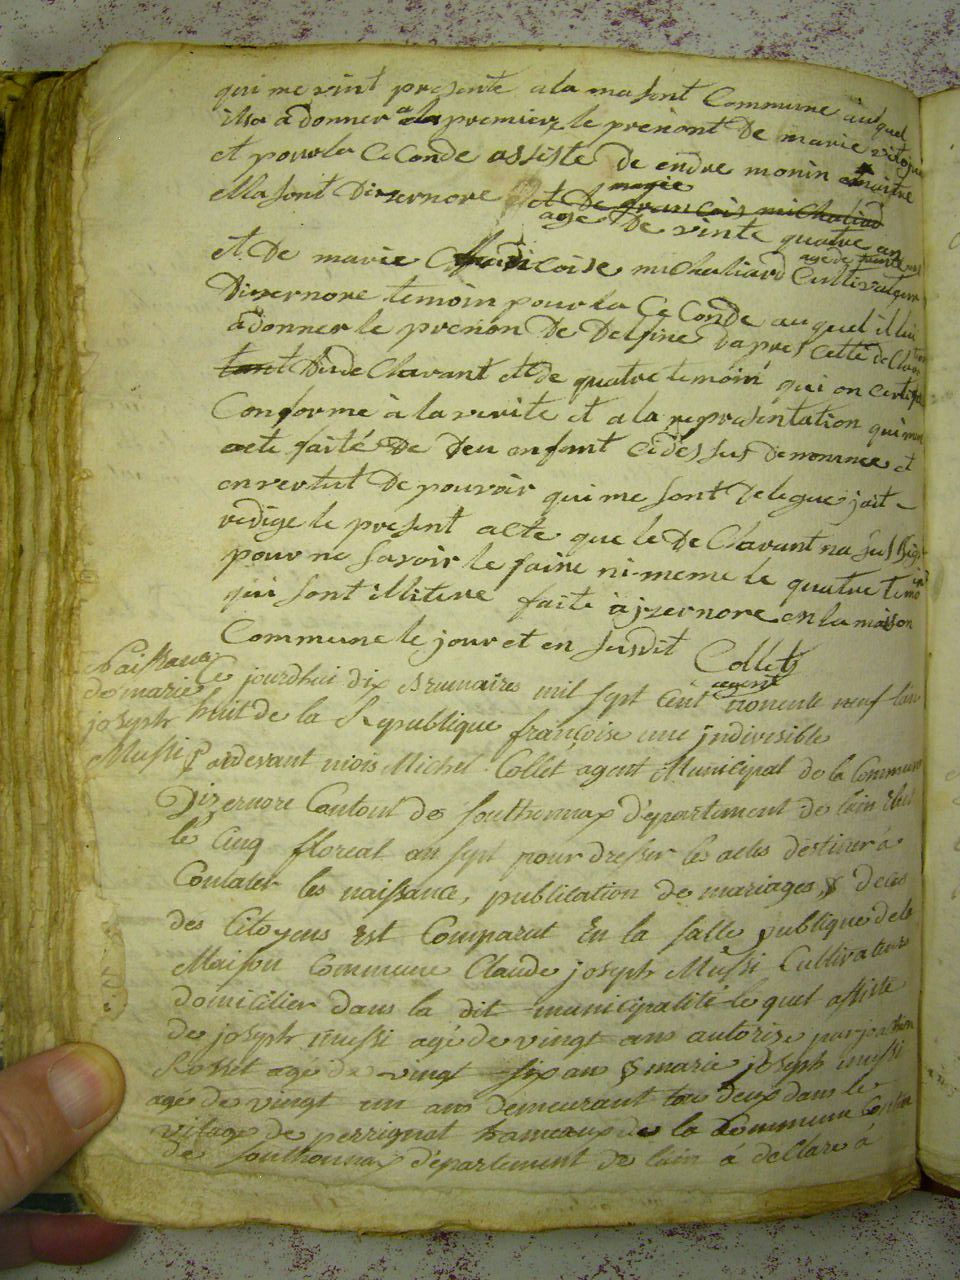 qui me sint presente a la masont Commune auquel
illa a donner a la premierz le prenont De marie vitoque
et pour la Ceconde assiste De endre monin maitre
Masont Dizernore et De marie francois michaliard
age De vinte quatre an
et De marie francoise michaliard age de trente ans Cultivateur
Dizernore temoin pour la Ceconde auquel il lui
a donner le prenon De Delfine Dapres cette declara
tant Dude Clavant et de quatre temoin qui on certifie
Conforme à la verite et a la representation qui mon
ete faité De Deu enfant cidessus denommee et
en vertut De pouvoir qui me sont Delegue jait
redige le present acte que le De Clavant na sus signe
pour ne savoir le faire ni meme le quatre temoin
qui sont illitere faite à jzernore en la maison
Commune le jour et en susdit Collet
agent
Naissance
de marie
joseph
Mussi
Ce jourdhui dix Brumaires mil sept cent nonente neuf lan
huit de la Republique françoise une jndivisible
Pardevant mois Michel Collet agent Municipal de la Commune
Dizernore Cantont de Sonthonnax département de lain Elus
le Cinq floreal an sept pour dresser les actes destiner à
Contater les naissance, publication de mariages & deces
des Citoyens Est Comparut En la salle publique dela
Maison Commune Claude joseph Mussi Cultivateur
domicilier dans la dit municipalité lequel assiste
de joseph mussi agé de vingt ans autorize par
Rosset agé de vingt six an & marie joseph mussi
agé de vingt un ans demeurant tou deux dans le
vilage de perrignat hameaux de la Commune
de Sonthonnax département de lain a declare à